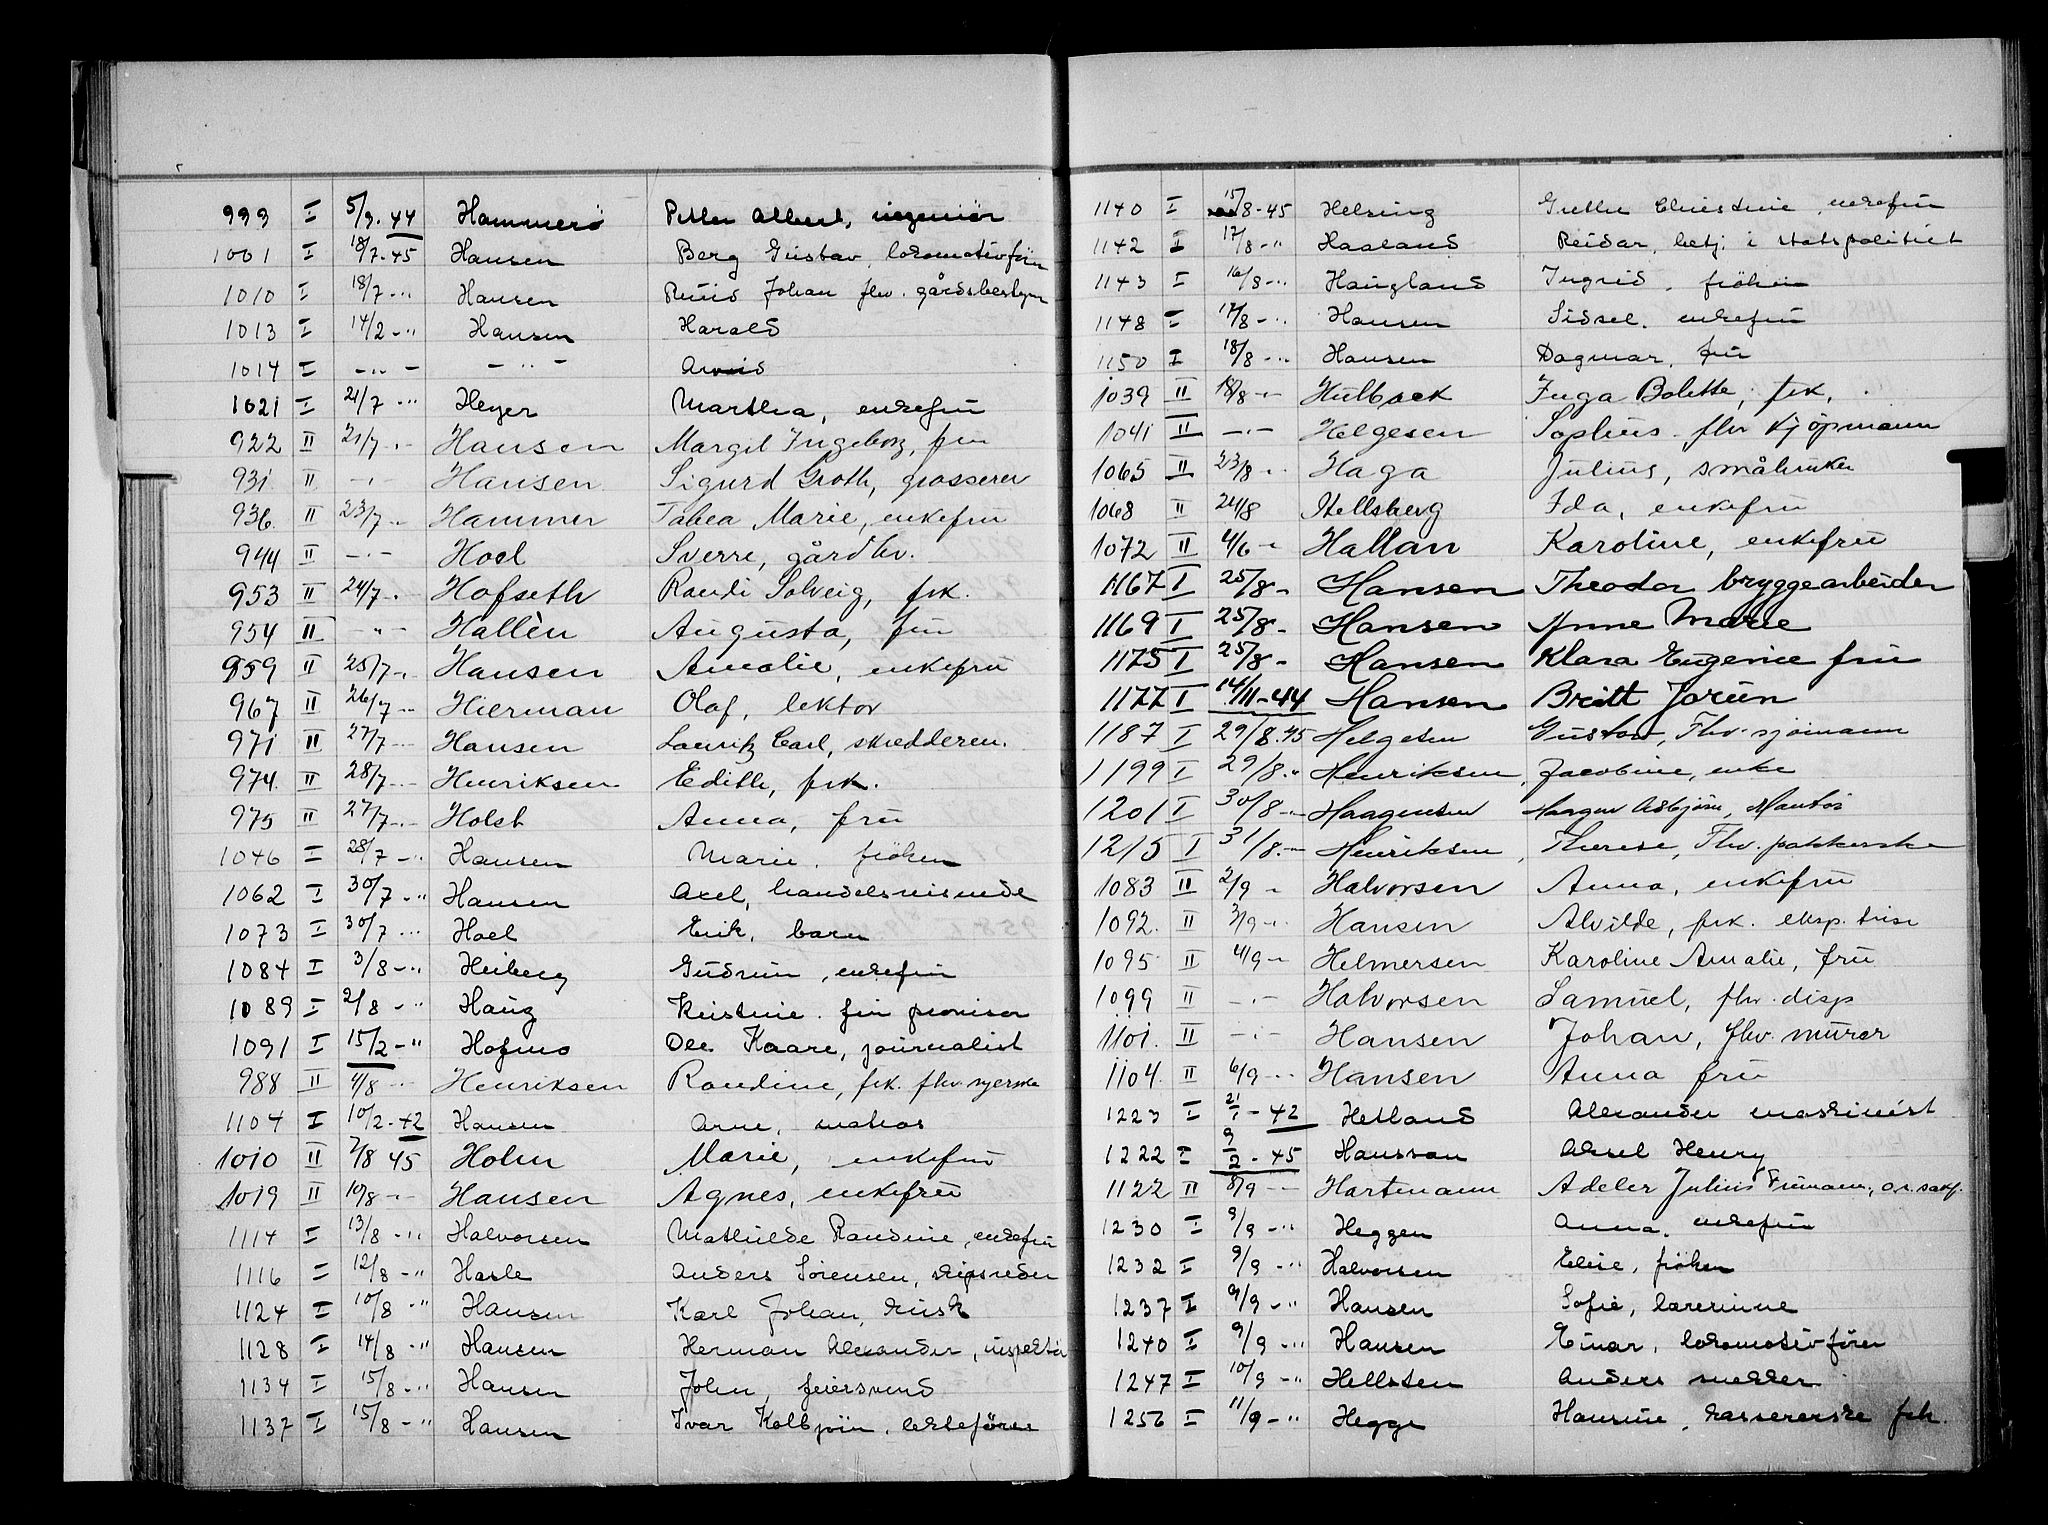 999 I 5/9-44 Hammerö Petter Albert, ingeniör
1001 I 18/7-45 Hansen Berg Gustav, lokomotivfører
1010 I 18/7-" Hansen Johan fhv. gårdsbestyrer
1013 I 14/2-" Hansen Harald
1014 I -"- -"-
1021 I 21/7-" Heyer Martha, enkefru
922 II 21/7-" Hansen Margit Ingeborg, fru
931 II -"- Hansen Sigurd Groth, grosserer
936 II 23/7-" Hammer Tabea Marie, enkefru
944 II -"- Hoel Sverre, gårdbr.
953 II 24/7-" Hofseth Randi Solveig, frk.
954 II -"- Hallèn Augusta, fru
959 II 25/7-" Hansen Amalie, enkefru
967 II 26/7-" Hierman Olaf, lektor
971 II 27/7-" Hansen Lauritz Carl, skredderm.
974 II 28/7-" Henriksen Edith, frk.
975 II 27/7-" Holst Anna, fru
1046 I 28/7-" Hansen Marie, fröken
1062 I 30/7-" Hansen Axel, handelsreisende
1073 I 30/7-" Hoel Erik, barn
1084 I 3/8-" Heiberg Gudrun, enkefru
1089 I 2/8-" Haug Kristine, fru provisor
1091 I 15/2-" Hofmo Ole Kaare, journalist
988 II 4/8-" Henriksen Randine, frk. fhv. syerske
1104 I 10/2-42 Hansen Arne, matros
1010 II 7/8 45 Holm Marie, enkefru
1019 II 10/8-" Hansen Agnes, enkefru
1114 I 13/8-" Halvorsen Mathilde Randine, enkefru
1116 I 12/8-" Hasle Anders Sörensen, skipsreder
1124 I 10/8-" Hansen Karl Johan, kusk
1128 I 14/8-" Hansen Herman Alexander, inspektör
1134 I 15/8-" Hansen John, feiersvend
1137 I 15/8-" Hansen Ivar Kolbjörn, lekteförer
1140 I 15/8-45 Helsing Grethe Christine, enkefru
1142 I 17/8-" Haaland Reidar, betj. i statspolitiet
1143 I 16/8-" Haugland Ingrid, fröken
1148 I 17/8-" Hansen Sidsel, enkefru
1150 I 18/8-" Hansen Dagmar, fru
1039 II 18/8-" Hulback Inga Bolette, frk.
1041 II -"- Helgesen Sophus, fhv. kjöpmann
1065 II 23/8-" Haga Julius, småbruker
1068 II 24/8 Hellsberg Ida, enkefru
1072 II 4/6-" Hallan Karoline, enkefru
1167 I 25/8- Hansen Theodor bryggearbeider
1169 I 25/8- Hansen Anne Marie
1175 I 25/8- Hansen Klara Eugenie fru
1177 I 14/11-44 Hansen Britt Jorun
1187 I 29/8.45 Helgesen Gustav, Fhv. sjömann
1199 I 29/8-" Henriksen, Jacobine, enke
1201 I 30/8-" Haagensen Asbjörn,
1215 I 31/8-" Henriksen, Therese, Fhv. pakkerske
1083 II 2/9-" Halvorsen Anna, enkefru
1092 II 3/9-" Hansen Alvilde, frk. eksp. trise
1095 II 4/9-" Helmersen Karoline Amalie, fru
1099 II -"- Halvorsen Samuel, fhv. disp
1101 II -"- Hansen Johan, fhv. murer
1104 II 6/9-" Hansen Anna fru
1223 I 21/1-42 Hetland Alexander maskinist
1222 I 9/2-45 Hansson Aksel Henry
1122 II 8/9-" Hartmann Adeler Julius Frimann, o.r. sakf.
1230 I 9/9-" Heggen Anna, enkefru
1232 I 9/9-" Halvorsen Elise, fröken
1237 I 9/9-" Hansen Sofie, lærerinne
1240 I 9/9-" Hansen Einar, lokomotivförer
1247 I 10/9-" Hellsten Anders snekker
1256 I 11/9-" Hegge Hansine, kassererske frk.